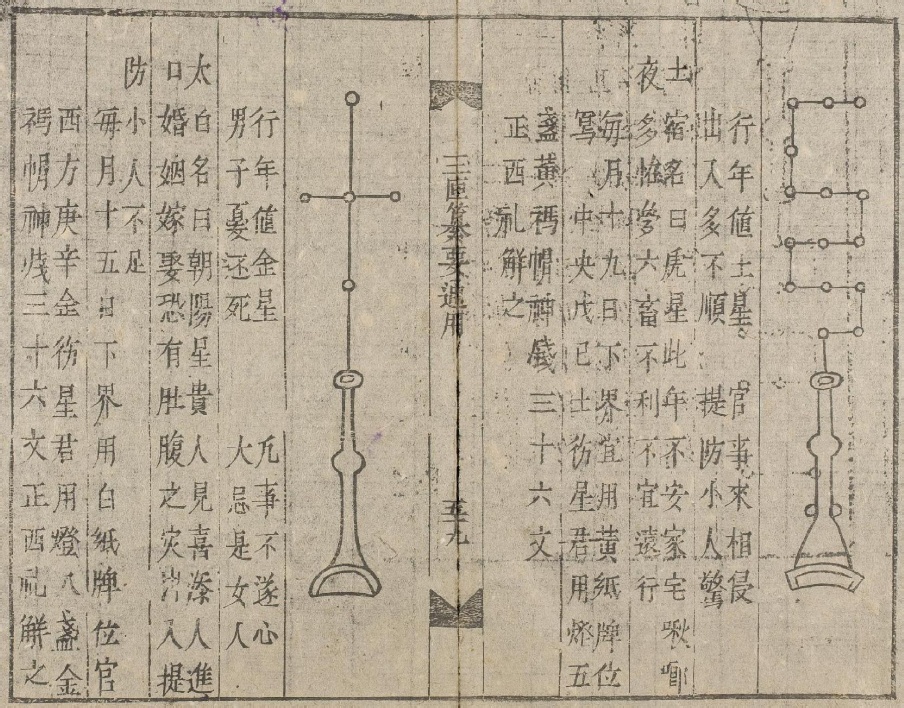 行年值土星。 官事來相侵
出入多不順 提防小人驚
土宿名曰虎星此年不安家宅啾唧
夜多怪夢六畜不利不宜遠行
每月十九日下界宜用黃紙牌位
写中央戊己土彷星君用燈五
盞黃禡帽神錢三十六文
正西礼解之
三匣纂要通用 五十九
行年值金星 凡事不遂心
男子憂还死 大忌是女人
太白名曰朝陽星貴人見喜添人進
口婚姻嫁娶恐有肚腹之灾入提
防小人不足
每月十五日下界用白紙牌位官
西方庚辛金彷星君用燈八盞金
禡帽神戋三十六文正西礼解之